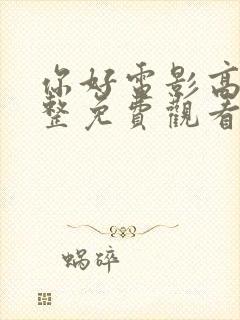 你好雷影高
整免費觀看
蝸碎